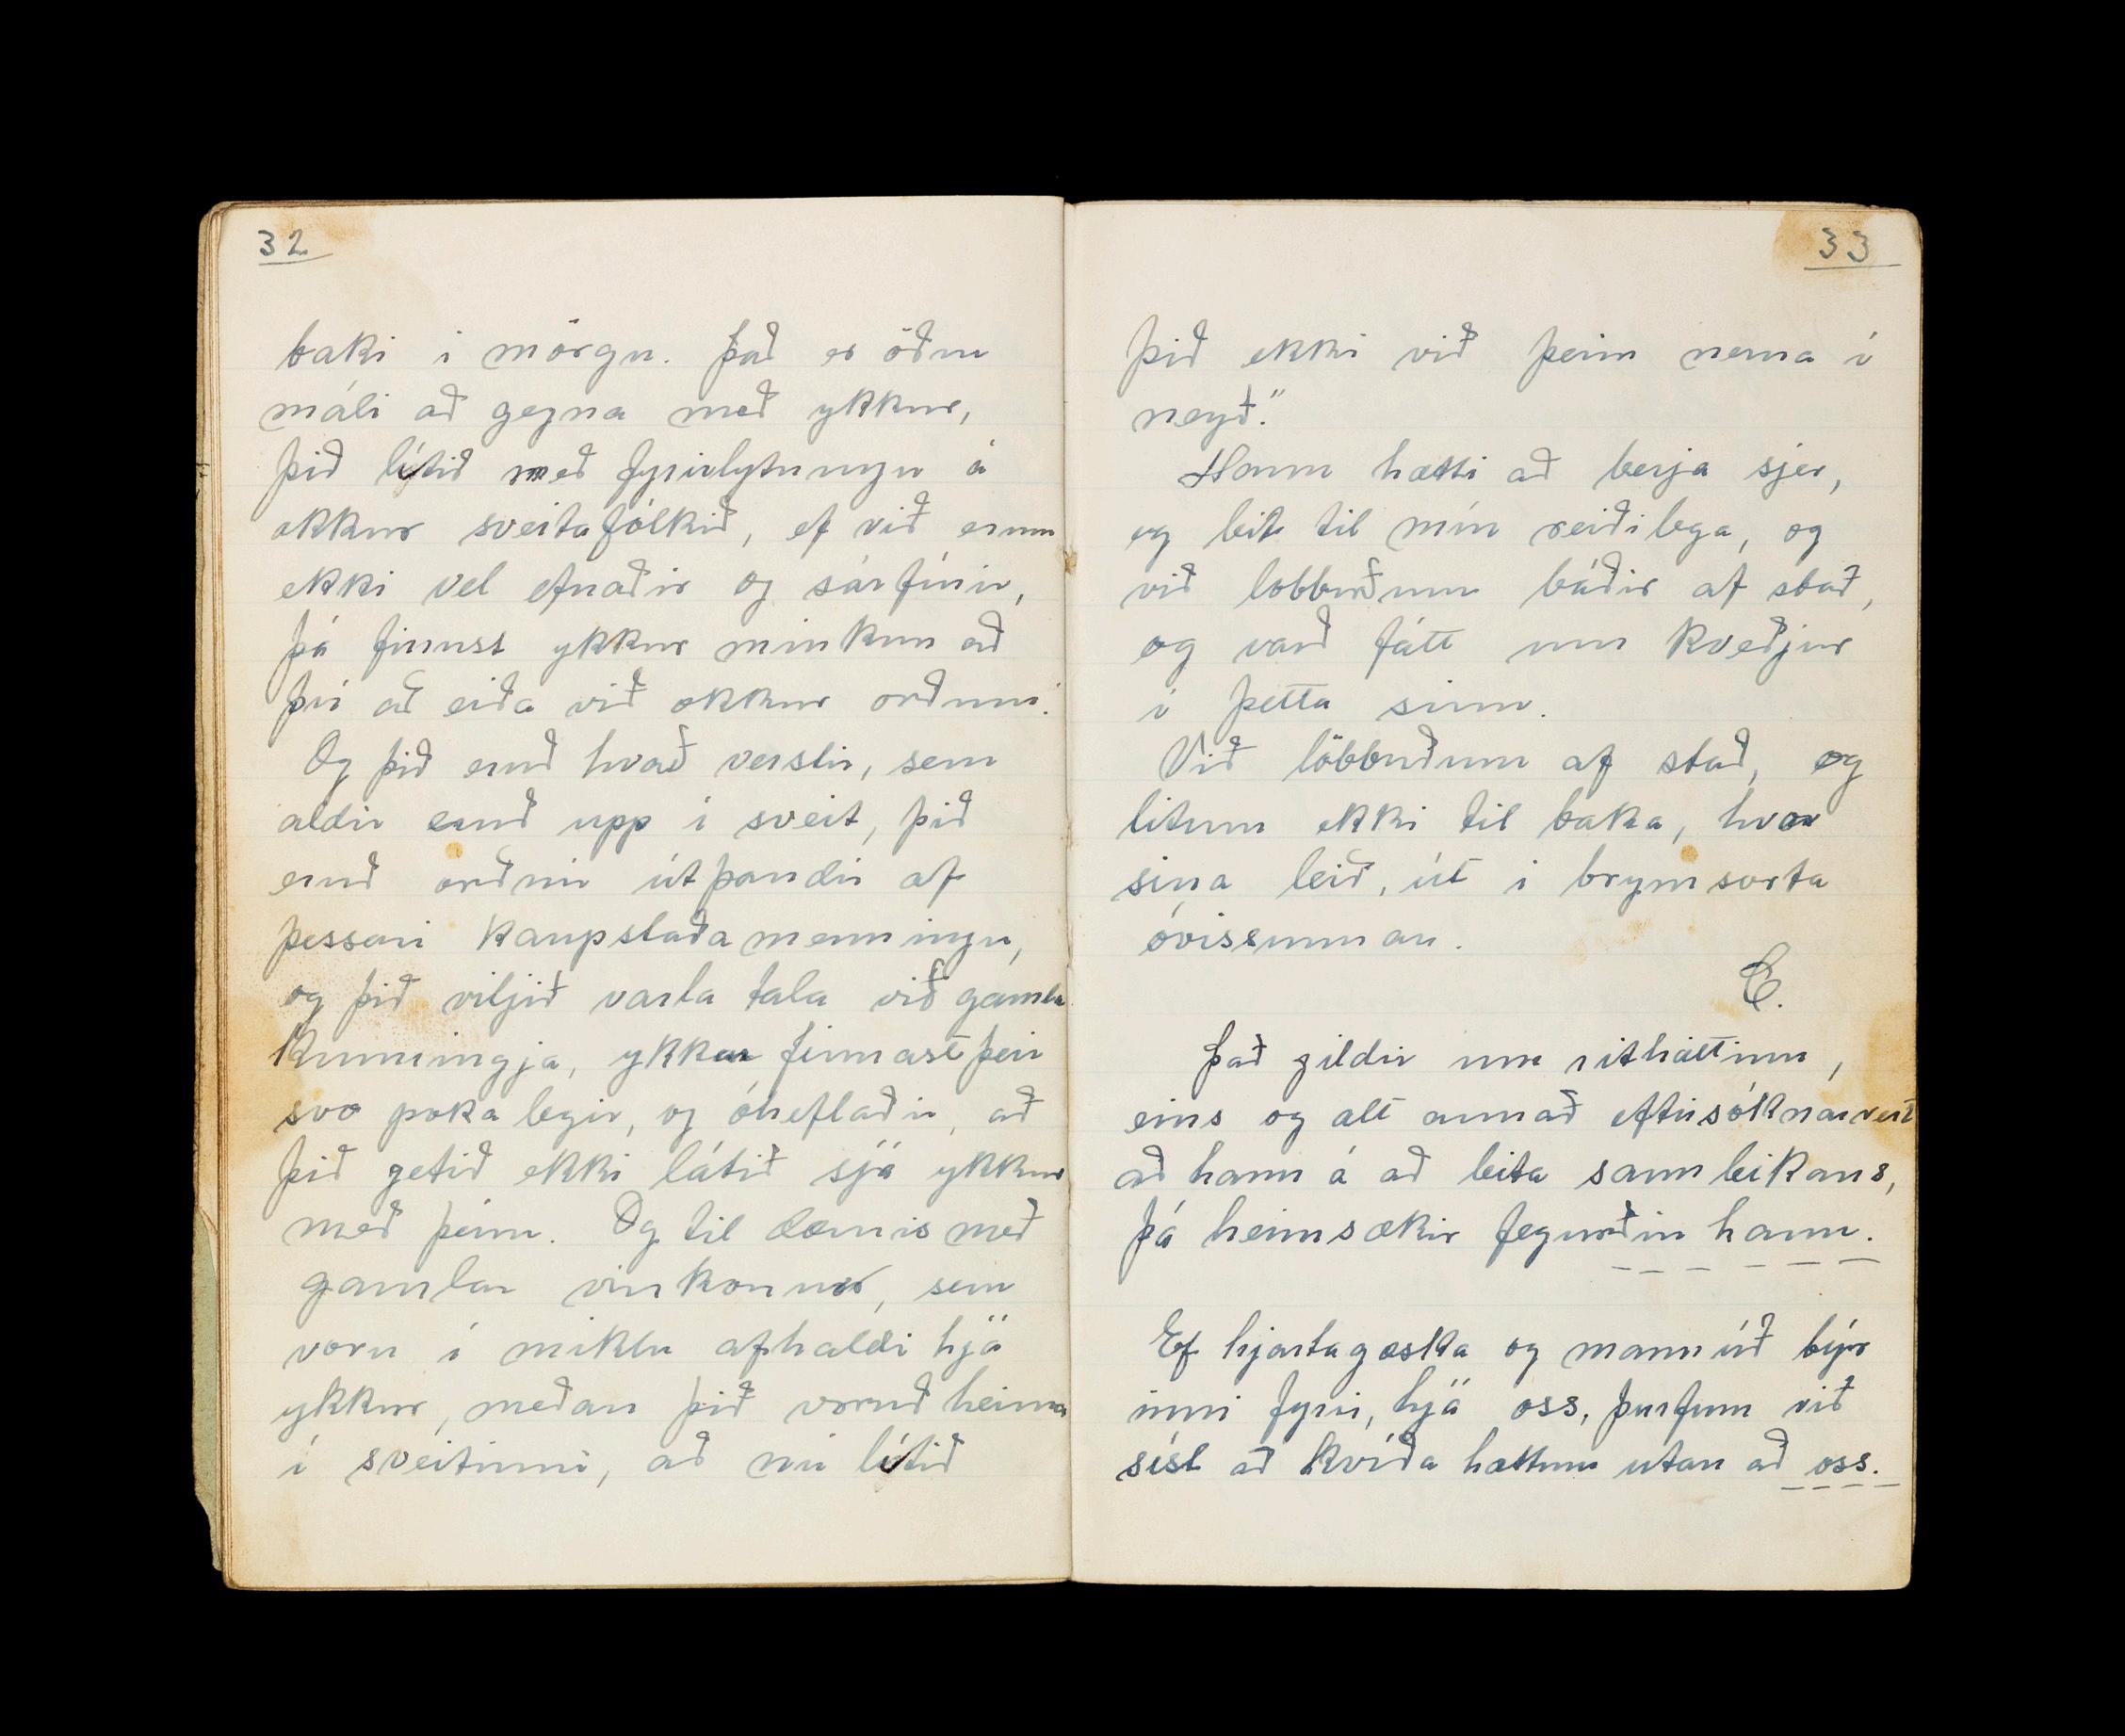 32
baki i mörgu. Það er öðru
máli að gegna með ykkur,
þið lítið með fyrirlytningu á
okkur sveitafólkið, ef við erum
ekki vel efnaðir og sárfínir,
þá finnst ykkur minkun að
því að eiða við okkur orðum.
Og þið eruð hvað verstir, sem
aldir eruð upp í sveit, þið
eruð orðnir útþandir af
þessari kaupstaðamenningu,
og þið viljið varla tala við gamla
kunningja, ykkur finnast þeir
svo pokalegir, og óheflaðir, að
þið getið ekki látið sjá ykkur
með þeim. Og til dæmis með
gamlar vinkonur, sem
voru í miklu afhaldi hjá
ykkur, meðan þið voruð heima
í sveitinni, að nú lítið
33
þið ekki við þeim nema í
neyð."
Hann hætti að berja sjer,
og leit til mín reiðilega, og
við lobbuðum báðir af stað,
og varð fátt um kveðjur
í þetta sinn.
Við löbbuðum af stað, og
litum ekki til baka, hvor
sína leið, út i brymsorta
óvissunnar.
C.
Það gildir um ritháttinn,
eins og alt annað eftirsóknarvert
að hann á að leita sannleikans,
þá heimsækir fegurðin hann.
Ef hjartagæska og mannúð býr
inni fyrir, hjá oss, þurfum við
síst að kvíða hættum utan að oss.